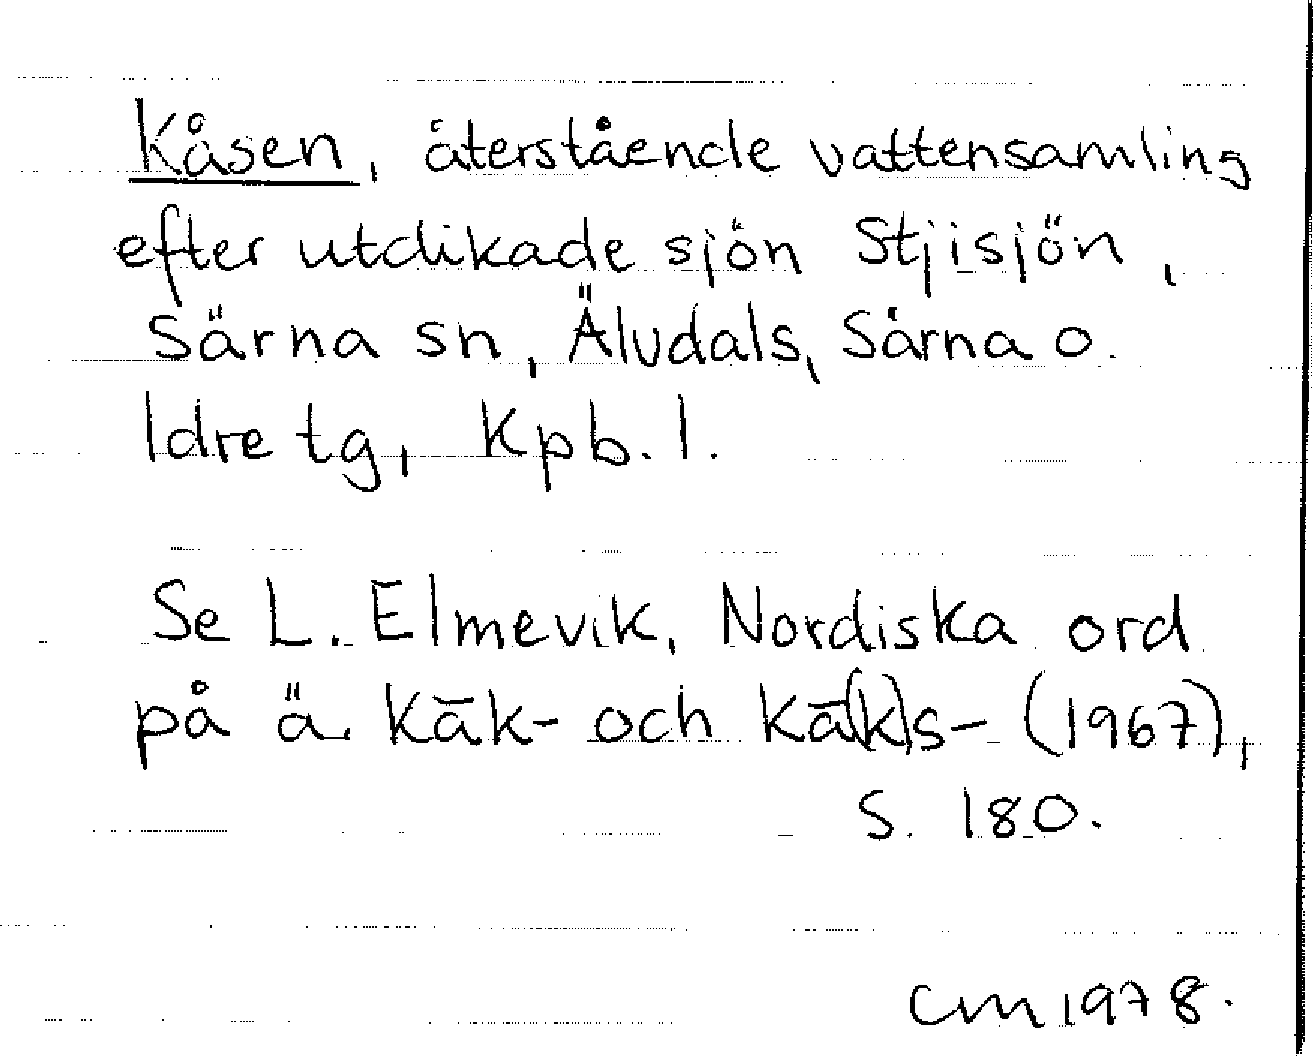 Kåsen, återstående vattensamling
efter utdikade sjön Stjisjön,
Särna sn, Äludals, Särna o.
Idre tg, Kpb. l.
Se L. Elmevik, Nordiska ord
på ä. kāk- och kā(k)s- (1967),
s. 180.
CM 1978.